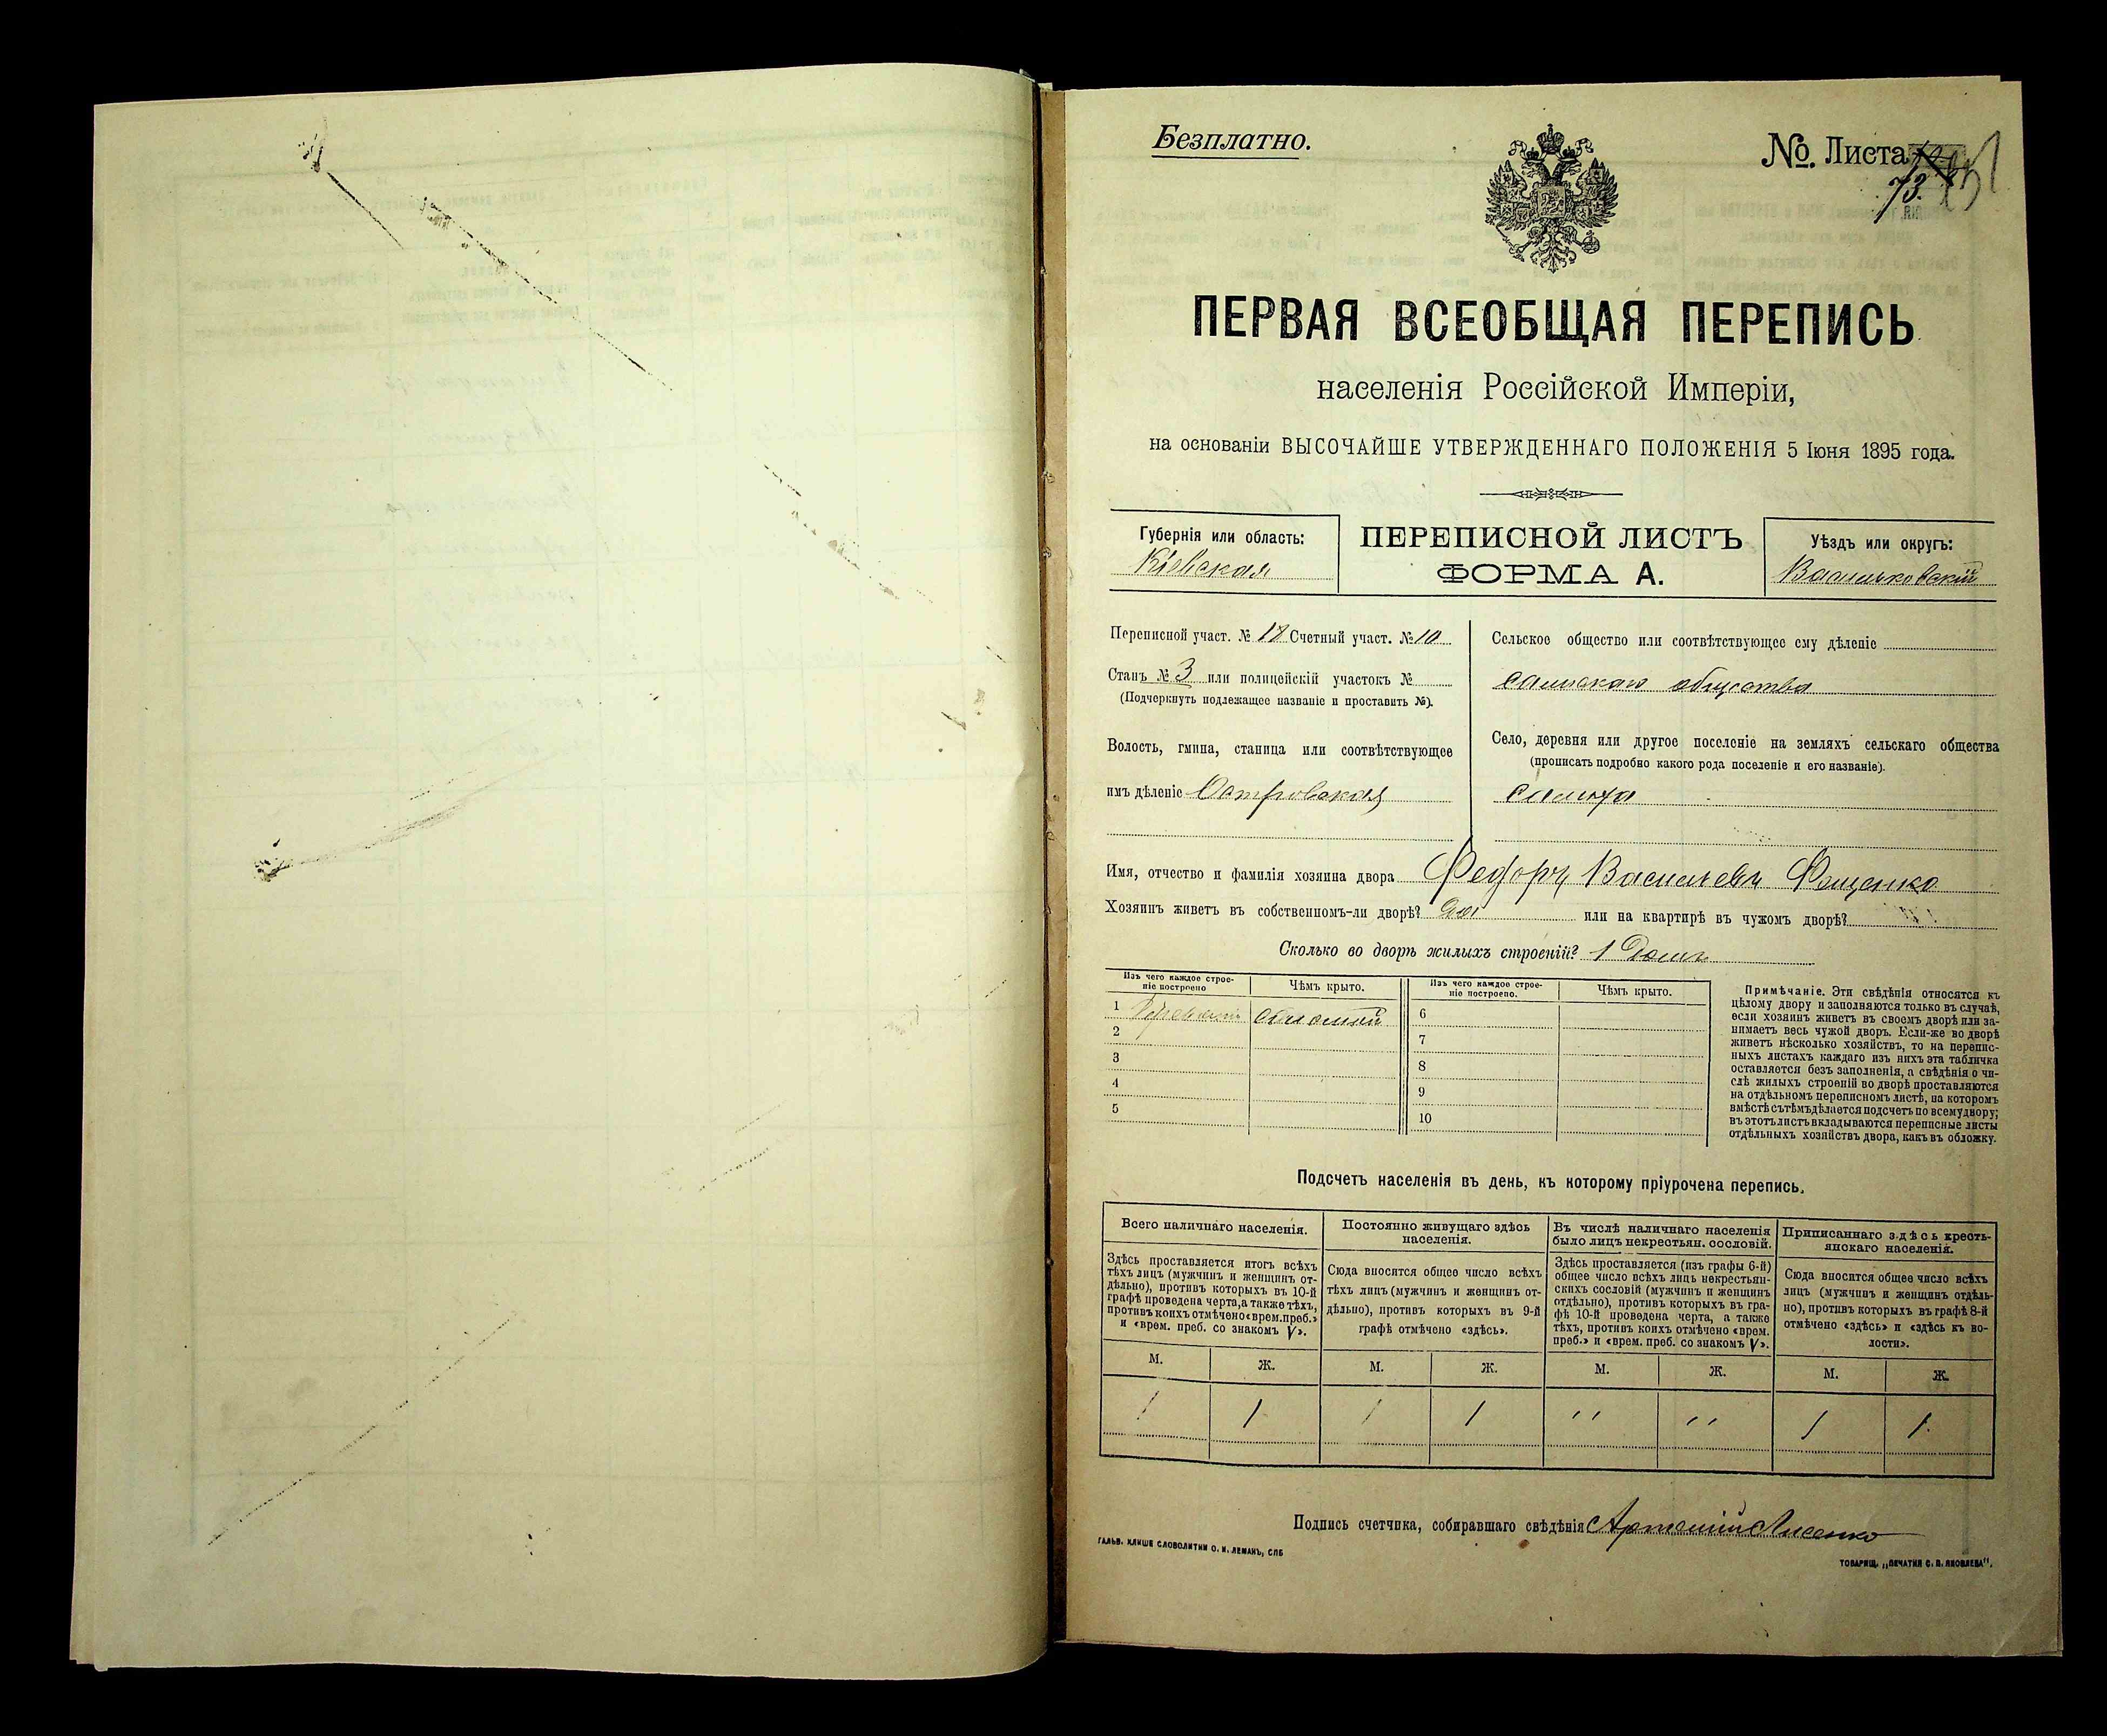 Безплатно.
№. Листа
73.
ПЕРВАЯ ВСЕОБЩАЯ ПЕРЕПИСЬ
населенія Россійской Имперіи,
на основаніи ВЫСОЧАЙШЕ УТВЕРЖДЕННАГО ПОЛОЖЕНІЯ 5 Іюня 1895 года.
Губернія или область:
Кіевская
ПЕРЕПИСНОЙ ЛИСТЪ
ФОРМА А.
Уѣздъ или округъ:
Васильковскій
Переписной участ. № 18 Счетный участ. № 10
Станъ № 3 или полицейскій участокъ №
(Подчеркнуть подлежащее названіе и проставить №).
Волость, гмина, станица или соотвѣтствующее
имъ дѣленіе Островская
Сельское общество или соотвѣтствующее ему дѣленіе
общества
Село, деревня или другое поселеніе на земляхъ сельскаго общества
(прописать подробно какого рода поселеніе и его названіе).
Имя, отчество и фамилія хозяина двора Федоръ Васильевъ Фещенко
Хозяинъ живетъ въ собственномъ-ли дворѣ? Да или на квартирѣ въ чужомъ дворѣ?
Сколько во дворѣ жилыхъ строеній? 1 Домъ
Изъ чего каждое строе-
ніе построено
Чѣмъ крыто.
Изъ чего каждое строе-
ніе построено.
Чѣмъ крыто.
1 соломой
2
3
4
5
6
7
8
9
10
Примѣчаніе. Эти свѣдѣнія относятся къ
цѣлому двору и заполняются только въ случаѣ,
если хозяинъ живетъ въ своемъ дворѣ или за-
нимаетъ весь чужой дворъ. Если-же во дворѣ
живетъ нѣсколько хозяйствъ, то на перепис-
ныхъ листахъ каждаго изъ нихъ эта табличка
оставляется безъ заполненія, а свѣдѣнія о чи-
слѣ жилыхъ строеній во дворѣ проставляются
на отдѣльномъ переписномъ листѣ, на которомъ
вмѣстѣ съ тѣмъ дѣлается подсчетъ по всему двору;
въ этотъ листъ вкладываются переписные листы
отдѣльныхъ хозяйствъ двора, какъ въ обложку.
Подсчетъ населенія въ день, къ которому пріурочена перепись.
Всего наличнаго населенія.
Здѣсь проставляется итогъ всѣхъ
тѣхъ лицъ (мужчинъ и женщинъ от-
дѣльно), противъ которыхъ въ 10-й
графѣ проведена черта, а также тѣхъ,
противъ коихъ отмѣчено «врем. преб.»
и «врем. преб. со знакомъ V».
Постоянно живущаго здѣсь
населенія.
Сюда вносится общее число всѣхъ
тѣхъ лицъ (мужчинъ и женщинъ от-
дѣльно), противъ которыхъ въ 9-й
графѣ отмѣчено «здѣсь».
Въ числѣ наличнаго населенія
было лицъ некрестьян. сословій.
Здѣсь проставляется (изъ графы 6-й)
общее число всѣхъ лицъ некрестьян-
скихъ сословій (мужчинъ и женщинъ
отдѣльно), противъ которыхъ въ гра-
фѣ 10-й проведена черта, а также
тѣхъ, противъ коихъ отмѣчено «врем.
преб.» и «врем. преб. со знакомъ V».
Приписаннаго здѣсь кресть-
янскаго населенія.
Сюда вносится общее число всѣхъ
лицъ (мужчинъ и женщинъ отдѣль-
но), противъ которыхъ въ графѣ 8-й
отмѣчено «здѣсь» и «здѣсь къ во-
лости».
М. Ж. М. Ж. М. Ж. М. Ж.
1 1 1 1 " " 1 1
Подпись счетчика, собиравшаго свѣдѣнія Артемій Лисенко
ГАЛЬВ. КЛИШЕ СЛОВОЛИТНИ О. И. ЛЕМАНЪ, СПБ
ТОВАРИЩ. „ПЕЧАТНЯ С. П. ЯКОВЛЕВА".